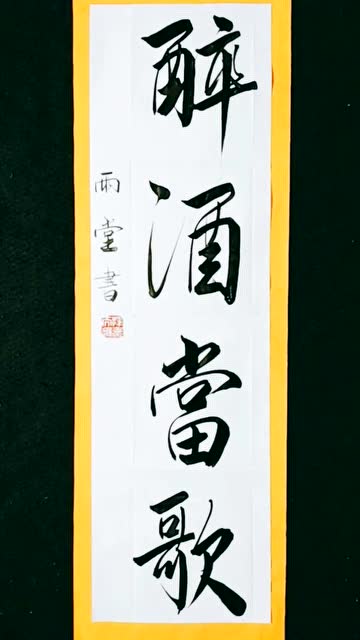 醉酒當歌
雨堂書